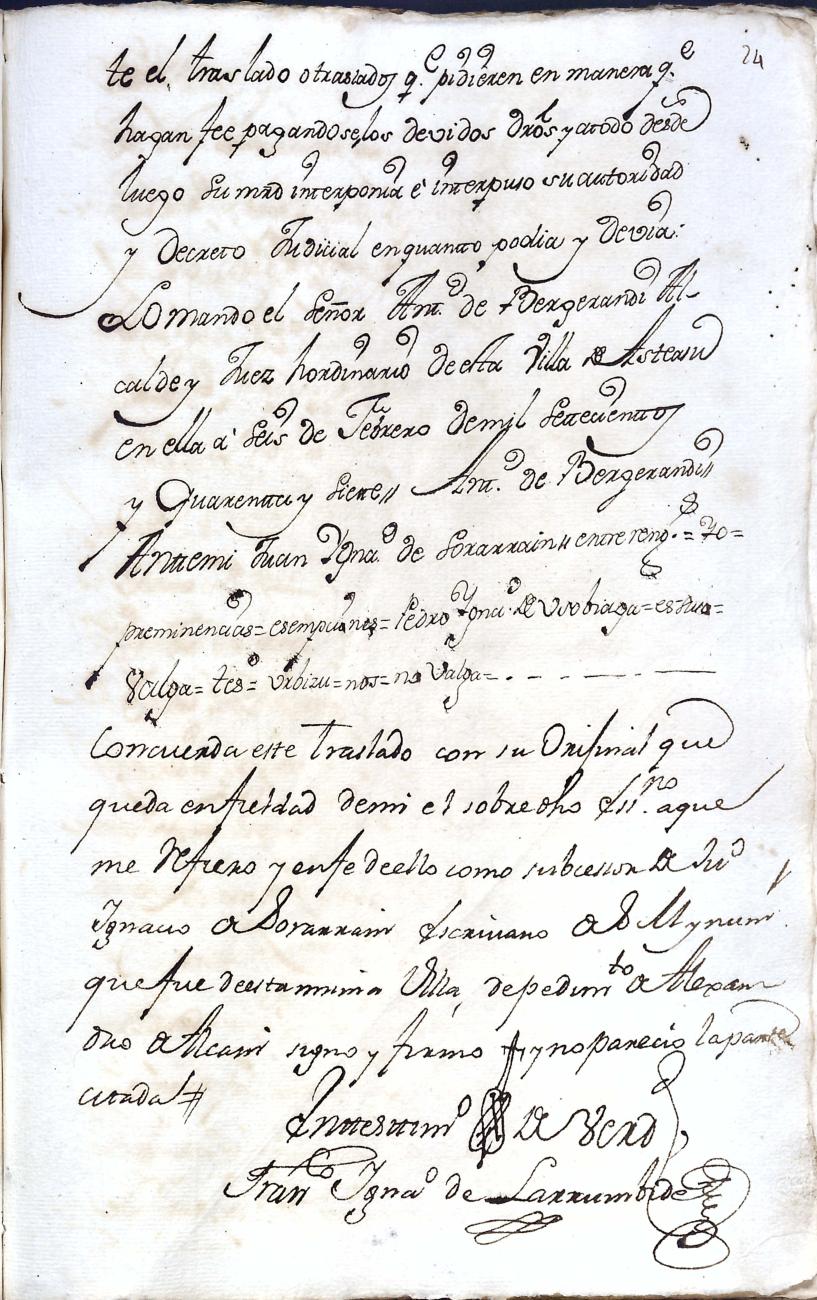 24
te el, traslado o traslados q.e pidieren en manera q.e
hagan fee pagandoselos devidos dros y atodo desde
luego su mrd interponia è interpuso su autoridad
y Decreto Judicial enquanto podia y devia:
Lo mando el Señor Ant.o de Bergerandi Al-
calde y Juez hordinario de esta Villa de Asteasu
en ella à seis de Febrero demil setecientos
y Quarenta y siete// Ant.o de Bergerandi//
Antemi Juan Ygna.o de Sorarrain// entre reng.s = Yo =
preminencias = esempciones = Pedro Ygna.o de Usobiaga = estubo =
Valga = tes.o = Urbizu = nos = no Valga = . - - - -
Concuerda este traslado con su Orijinal que
queda enfieldad demi el sobredho Ess.no aque
me Refiero y enfe deello como subcesor de Ju.o
Ignacio de Sorarrain Escrivano de S M y num
que fue deesta misma Villa, de pedim.to de Alexan
dro de Alcain signo y firmo y no parecio la parte
citada
En testim.o de Verd
Fran.co Igna.o de Larrumbide